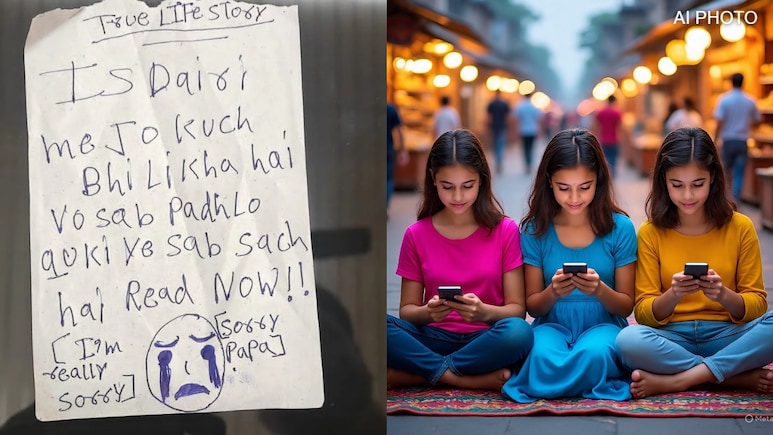 True Life Story
Is Dairi
me Jo kuch
Bhi Likha hai
vo sab Padh Lo
quki ye sab sach
hai Read NOW!!
[I'm
really
sorry]
[sorry
Papa]
AI PHOTO